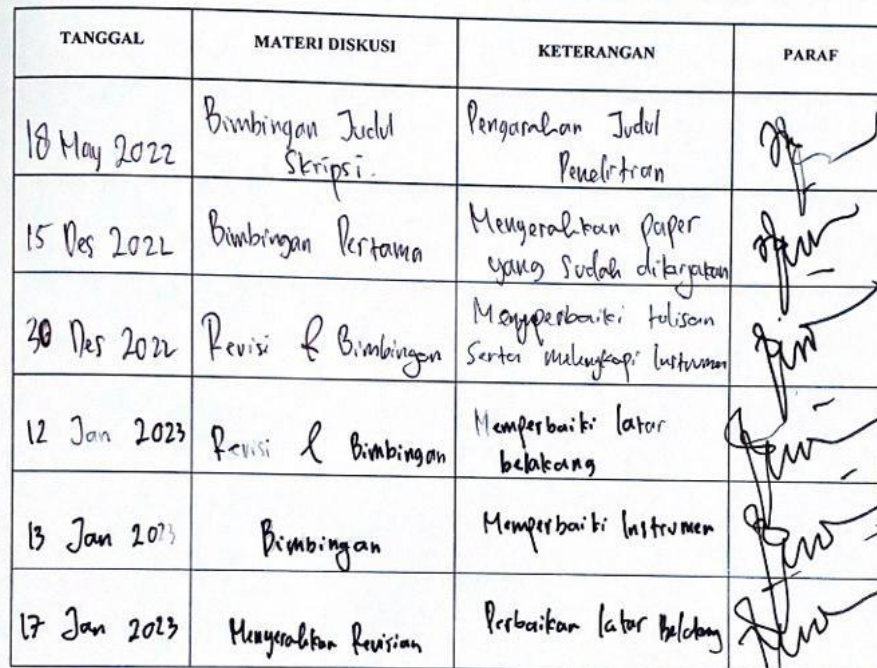 TANGGAL MATERI DISKUSI KETERANGAN PARAF
18 May 2022 Bimbingan Judul Pengarahan Judul
Skripsi. Penelitian
15 Des 2022 Bimbingan Pertama Menyerahkan paper
yang sudah dikerjakan
30 Des 2022 Revisi & Bimbingan Memperbaiki tulisan
Serta melengkapi Instrumen
12 Jan 2023 Revisi & Bimbingan Memperbaiki latar
belakang
13 Jan 2023 Bimbingan Memperbaiki Instrumen
17 Jan 2023 Menyerahkan Revisian Perbaikan latar Belakang